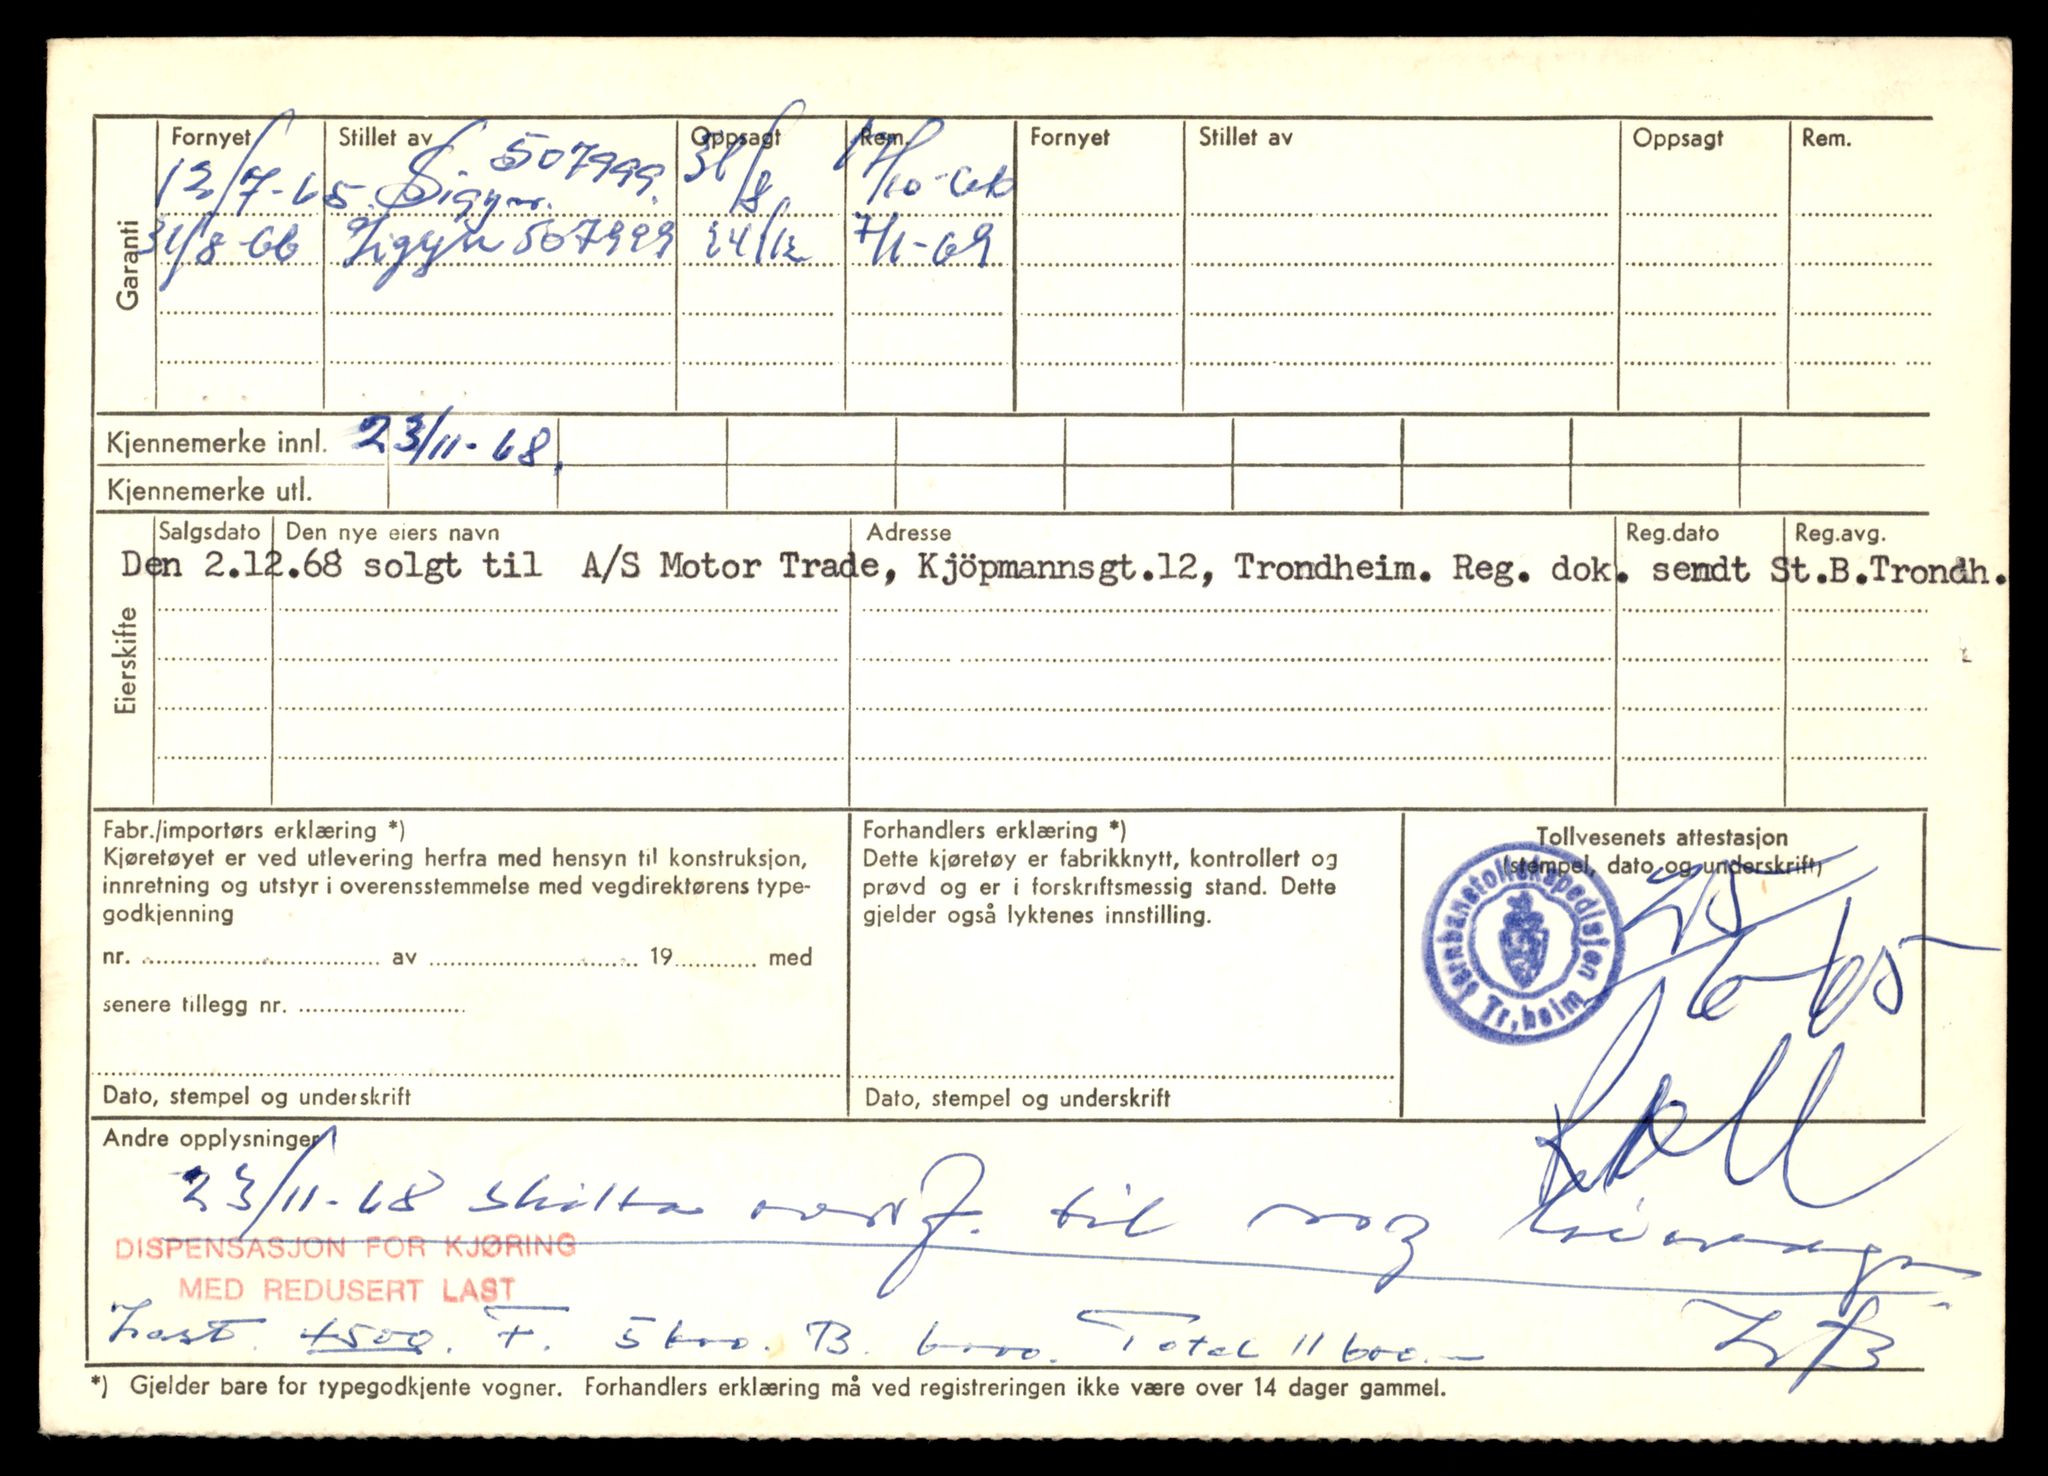 Garanti
Fornyet Stillet av Oppsagt Rem. Fornyet Stillet av Oppsagt Rem.
12/7-65 Sigyn. 507999. 31/8 17/10-66
31/8-66 Sigyn 507999 24/12 7/1-69
Kjennemerke innl. 23/11-68.
Kjennemerke utl.
Eierskifte
Salgsdato Den nye eiers navn Adresse Reg.dato Reg.avg.
Den 2.12.68 solgt til A/S Motor Trade, Kjöpmannsgt.12, Trondheim. Reg. dok. sendt St.B.Trondh.
Fabr./importørs erklæring *)
Kjøretøyet er ved utlevering herfra med hensyn til konstruksjon,
innretning og utstyr i overensstemmelse med vegdirektørens type-
godkjenning
nr. av 19 med
senere tillegg nr.
Dato, stempel og underskrift
Forhandlers erklæring *)
Dette kjøretøy er fabrikknytt, kontrollert og
prøvd og er i forskriftsmessig stand. Dette
gjelder også lyktenes innstilling.
Dato, stempel og underskrift
Tollvesenets attestasjon
(stempel, dato og underskrift)
Jernbanetollekspedisjonen Tr,heim
25/6-65
Andre opplysninger
23/11-68 skilta overf. til
DISPENSASJON FOR KJØRING
MED REDUSERT LAST
Last. 4500. F. 5600. B. 6000. Total 11600.-
*) Gjelder bare for typegodkjente vogner. Forhandlers erklæring må ved registreringen ikke være over 14 dager gammel.